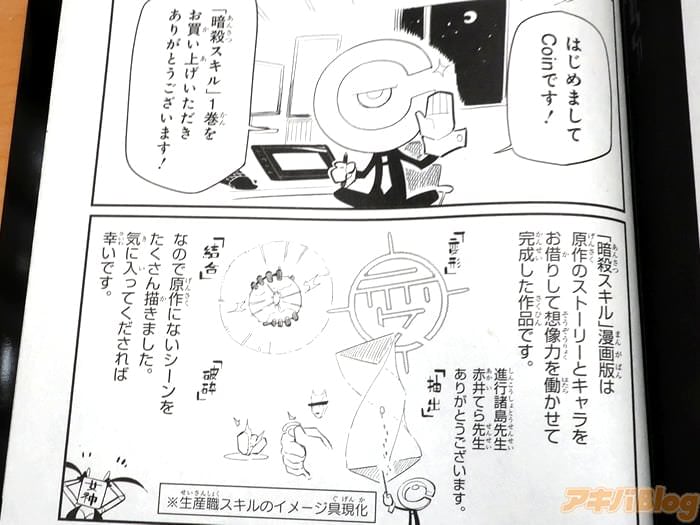 はじめまして
Coinです!
「暗殺スキル」1巻を
お買い上げいただき
ありがとうございます!
「暗殺スキル」漫画版は
原作のストーリーとキャラを
お借りして想像力を働かせて
完成した作品です。
進行諸島先生
赤井てら先生
ありがとうございます。
「変形」
「抽出」
「結合」
「破砕」
なので原作にないシーンを
たくさん描きました。
気に入ってくだされば
幸いです。
女神
※生産職スキルのイメージ具現化
アキバBlog